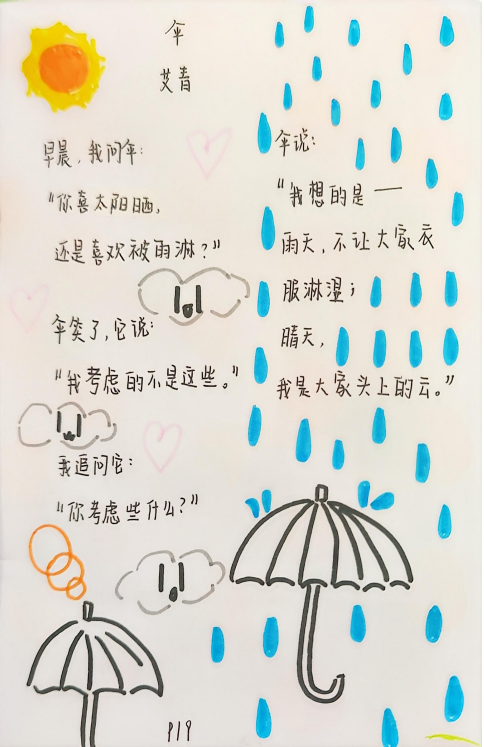 伞
艾青
早晨，我问伞：
“你喜太阳晒，
还是喜欢被雨淋？”
伞笑了，它说：
“我考虑的不是这些。”
我追问它：
“你考虑些什么？”
伞说：
“我想的是——
雨天，不让大家衣
服淋湿；
晴天，
我是大家头上的云。”
P19